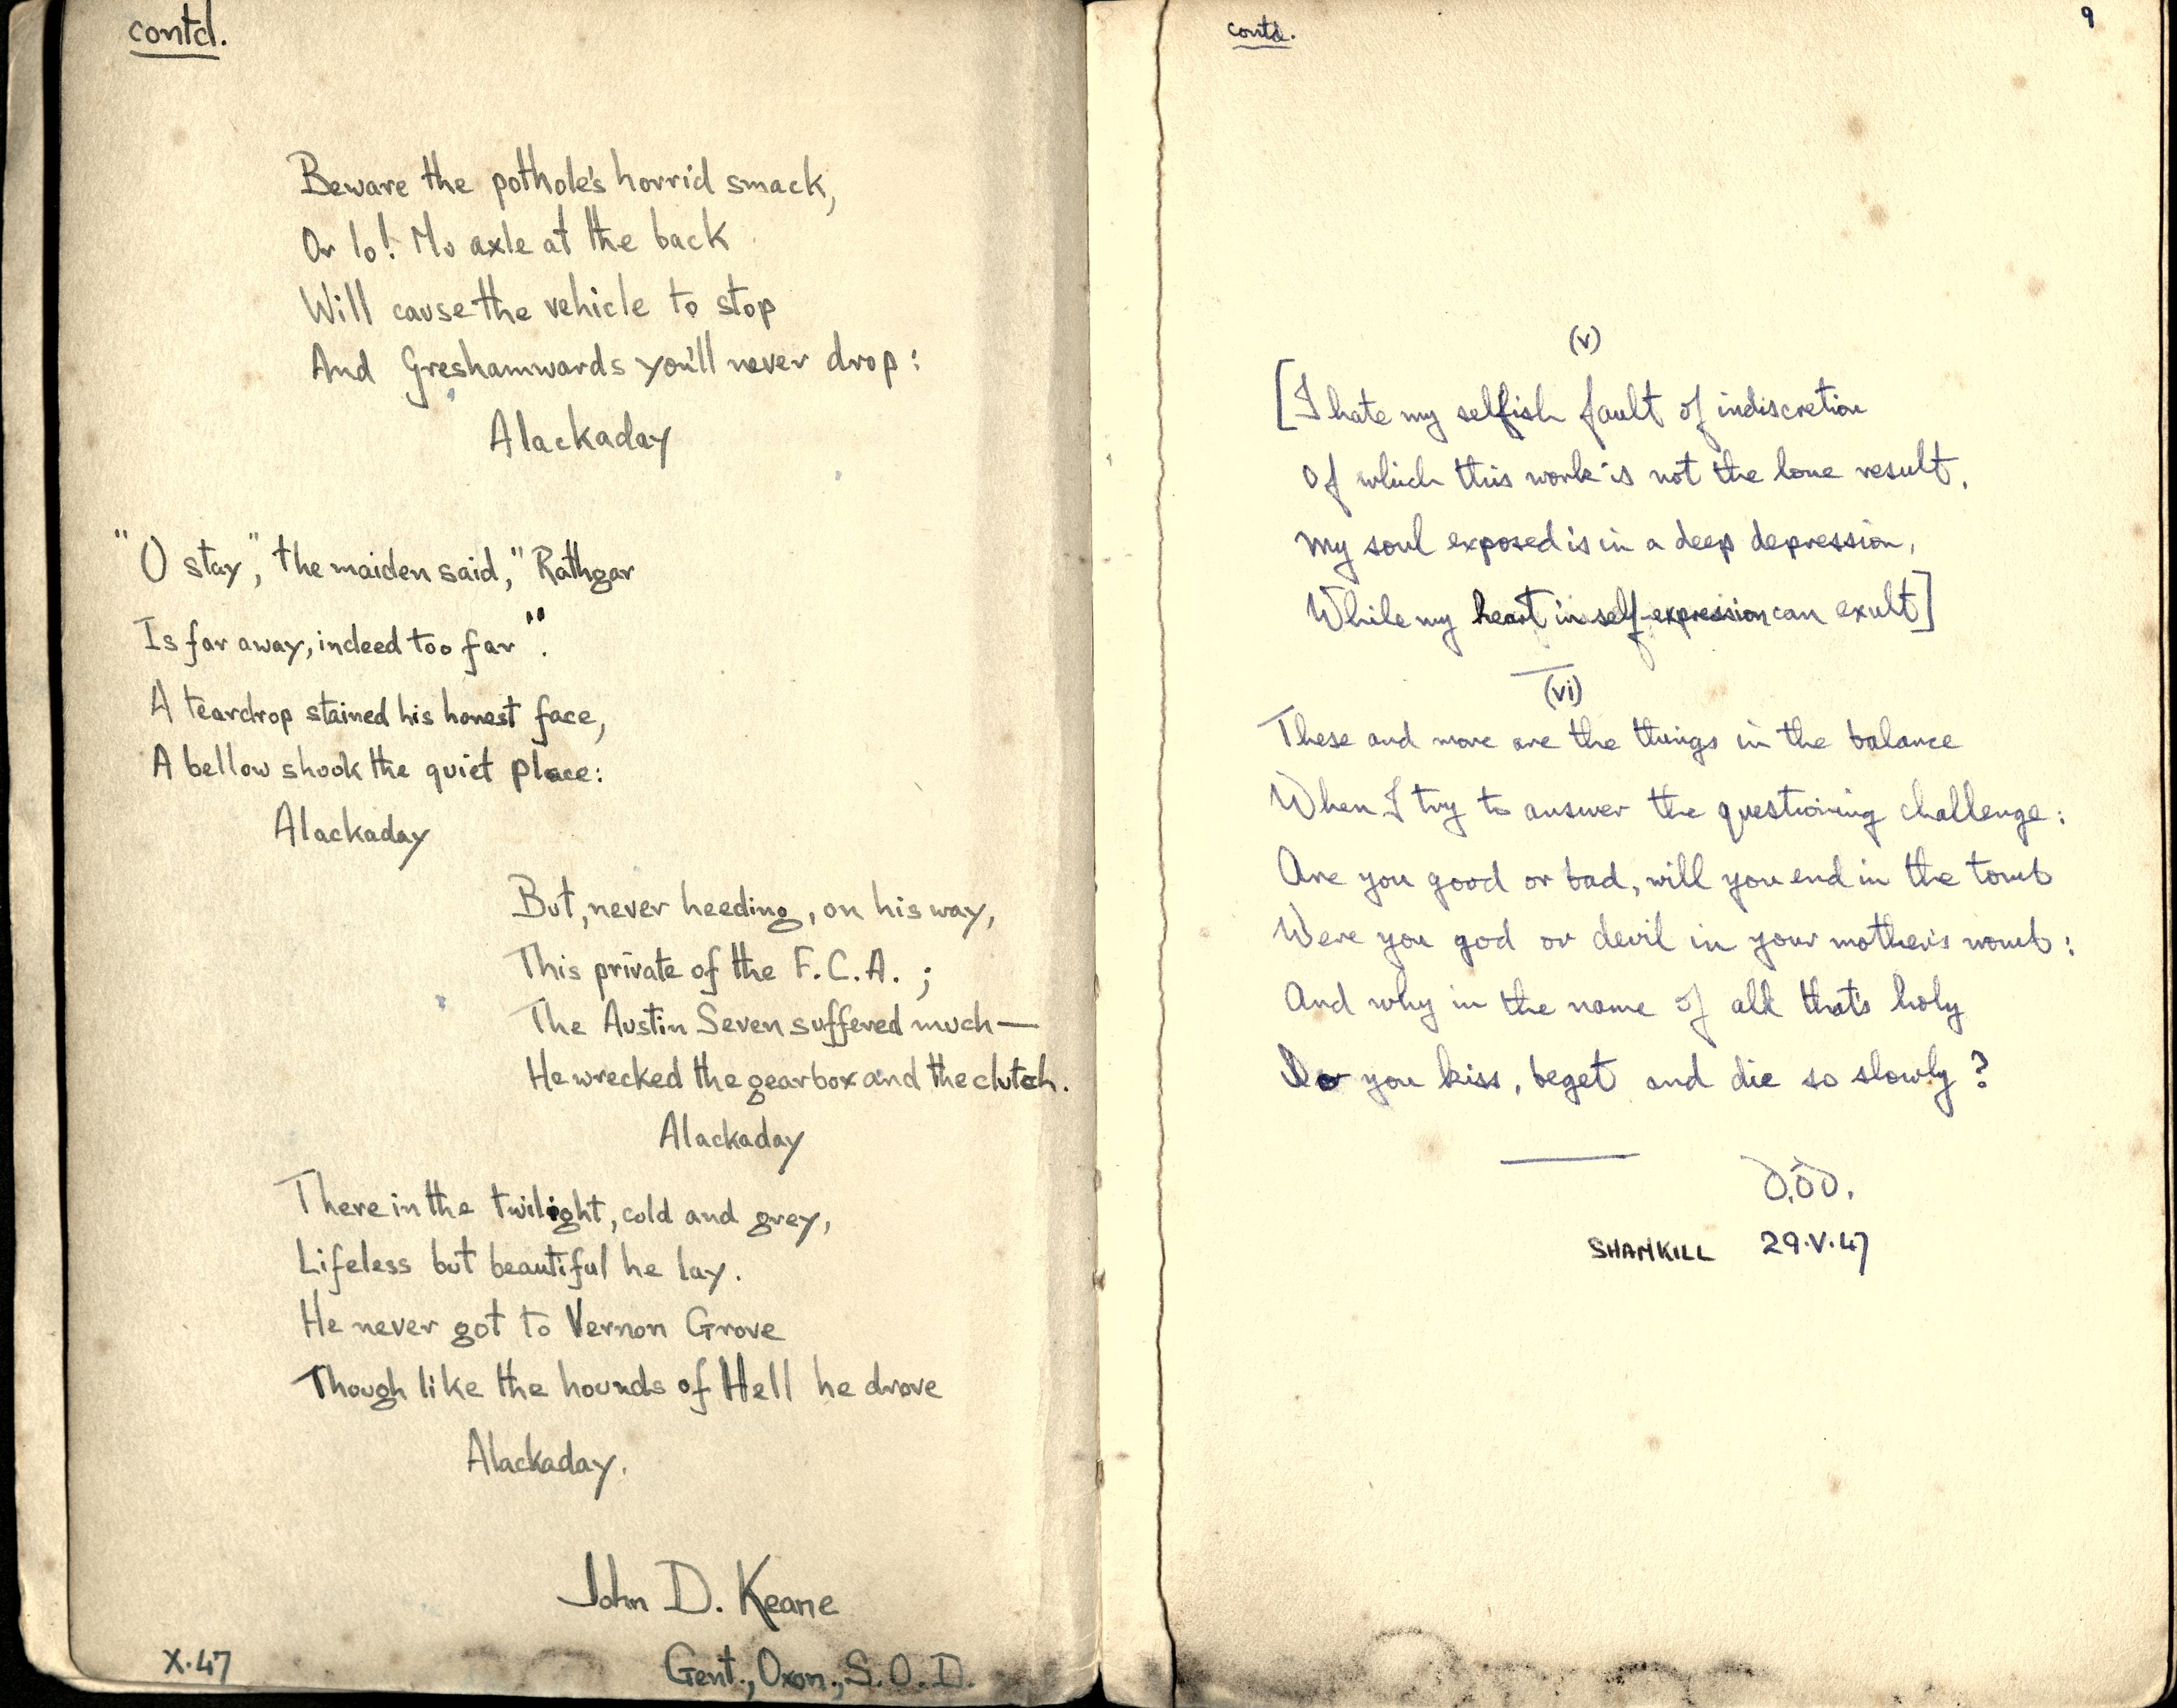 contd.
Beware the pothole's horrid smack,
Or lo! Mv axle at the back
Will cause the vehicle to stop
And Greshamwards you'll never drop:
Alackaday
"O stay", the maiden said, "Rathgar
Is far away, indeed too far".
A teardrop stained his honest face,
A bellow shook the quiet place:
Alackaday
But, never heeding, on his way,
This private of the F.C.A. ;
The Austin Seven suffered much—
He wrecked the gearbox and the clutch.
Alackaday
There in the twilight, cold and grey,
Lifeless but beautiful he lay.
He never got to Vernon Grove
Though like the hounds of Hell he drove
Alackaday.
John D. Keane
Gent., Oxon., S.O.D.
X.47
contd.
9
(v)
[I hate my selfish fault of indiscretion
Of which this work is not the lone result.
My soul exposed is in a deep depression,
While my heart in self-expression can exult]
(vi)
These and more are the things in the balance
When I try to answer the questioning challenge:
Are you good or bad, will you end in the tomb
Were you god or devil in your mother's womb:
And why in the name of all that's holy
Do you kiss, beget and die so slowly?
D.ÓD.
SHANKILL 29.V.47